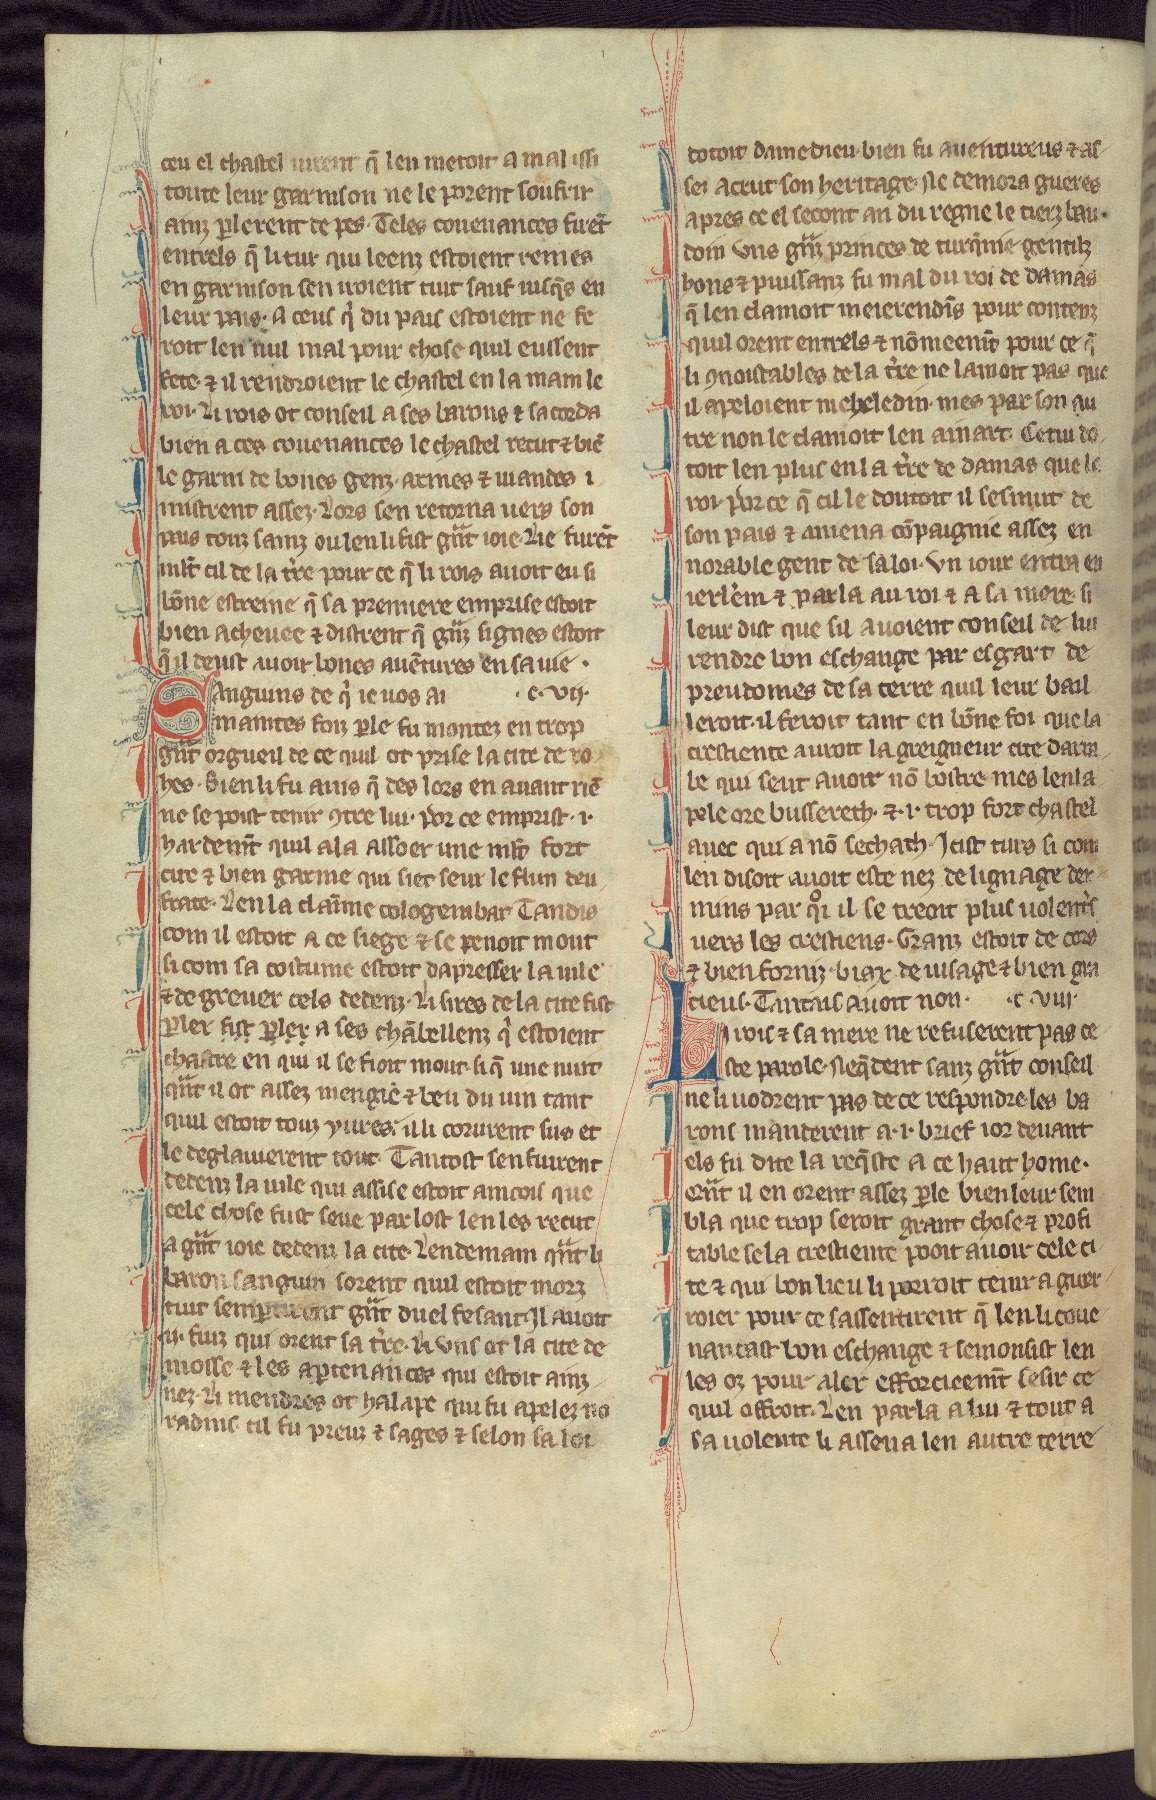 ceu el chastel uirent q̃ len metoit a mal issi
toute leur garnison ne le porent soufrir
ainz ꝑlerent de pes. Teles couenances furẽt
entrels q̃ li tur qui leenz estoient remes
en garnison sen iroient tuit sauf iusq̃s en
leur pais. A ceus q̃ du pais estoient ne fe
roit len nul mal pour chose quil eussent
fete. ⁊ il rendroient le chastel en la main le
roi. Li rois ot conseil a ses barons ⁊ sacorda
bien a ces couenances le chastel recut ⁊ biẽ
le garni de bones genz. armes ⁊ uiandes i
mistrent assez. Lors sen retorna uers son
pais touz sainz ou len li fist gᷓnt ioie. Lie furẽt
mlt̃ cil de la tr̃re pour ce q̃ li rois auoit eu si
bõne estreine q̃ sa premiere emprise estoit
bien acheuee ⁊ distrent q̃ gᷓnz signes estoit
q̃ il deust auoir bones auẽtures en sa uie.
Sanguins de q̃ ie uos ai .c. vij.
maintes foiz ꝑle fu montez en trop
gᷓnt orgueil de ce quil ot prise la cite de ro
hes. Bien li fu auis q̃ des lors en auant riẽ
ne se poist tenir ꝯtre lui. por ce emprist .i.
hardemt̃ quil ala assoer une mlt̃ fort
cite ⁊ bien garnie qui siet seur le flun deu
frate. Len la claĩme cologembar Tandis
com il estoit a ce siege ⁊ se penoit mout
si com sa costume estoit dapresser la uile
⁊ de greuer cels dedenz. Li sires de la cite fist
ꝑler fist ꝑler a ses chãbellenz q̃ estoient
chastre en qui il se fioit mout. si q̃ une nuit
qᷓnt il ot assez mengie ⁊ beu du uin tant
quil estoit touz yures. il li corurent sus et
le deglauierent tout. Tantost senfuirent
dedenz la uile qui assise estoit aincois que
cele chose fust seue par lost len les recut
a gᷓnt ioie dedenz la cite. Lendemain qᷓnt li
baron sanguin sorent quil estoit morz
tuit sempartirent gᷓnt duel fesant Il auoit
.ij. fuiz qui orent sa tr̃re. Li vns ot la cite de
mosse ⁊ les aꝑtenances qui estoit ainz
nez. Li mendres ot halape qui fu apelez no
radins. cil fu preuz ⁊ sages ⁊ selon sa loi
dotoit damedieu. bien fu auentureus ⁊ as
sez acrut son heritage. Ne demora gueres
apres ce el secont an du regne le tierz bau
doin vns gᷓnz princes de turq̃nie gentilz
bons ⁊ puissanz fu mal du roi de damas
q̃ len clamoit meierendĩs pour contenz
quil orent entrels ⁊ nõmeemt̃ pour ce q̃
li ꝯnoistables de la tr̃re ne lamoit pas que
il apeloient meheledin. mes par son au
tre non le clamoit len ainart. Cetui do
toit len plus en la tr̃re de damas que le
roi. por ce q̃ cil le doutoit il sesmut de
son pais ⁊ amena cõpaignie assez en
norable gent de sa loi. Vn iour entra en
ierlẽm ⁊ parla au roi ⁊ a sa mere. si
leur dist que sil auoient conseil de lui
rendre bon eschange par esgart de
preudomes de sa terre quil leur bail
leroit. il feroit tant en bõne foi que la
crestiente auroit la greigneur cite darra
be qui seut auoir nõ bostre. mes len la
pele ore bussereth. ⁊ .i. trop fort chastel
auec qui a nõ sechath. Icist turs si com
len disoit auoit este nez de lignage der
nuns par q̊i il se treoit plus uolentr̃s
uers les crestiens. Granz estoit de cors
⁊ bien forniz. biax de uisage ⁊ bien gra
cieus. Tantais auoit non. .c. viij.
Li rois ⁊ sa mere ne refuserent pas ce
ste parole. Neq̃dent sanz gᷓnt conseil
ne li uodrent pas de ce respondre. les ba
rons manderent a .i. brief ior deuant
els fu dite la reqste a ce haut home.
Qᷓnt il en orent assez ꝑle bien leur sem
bla que trop seroit grant chose ⁊ profi
table se la crestiente pooit auoir cele ci
te ⁊ qui bon lieu li porroit tenir a guer
roier pour ce sassentirent q̃ len li coue
nancast bon eschange ⁊ semonsist len
les oz pour aler efforcieemt̃ sesir ce
quil offroit. Len parla a lui ⁊ tout a
sa uolente li assena len autre terre